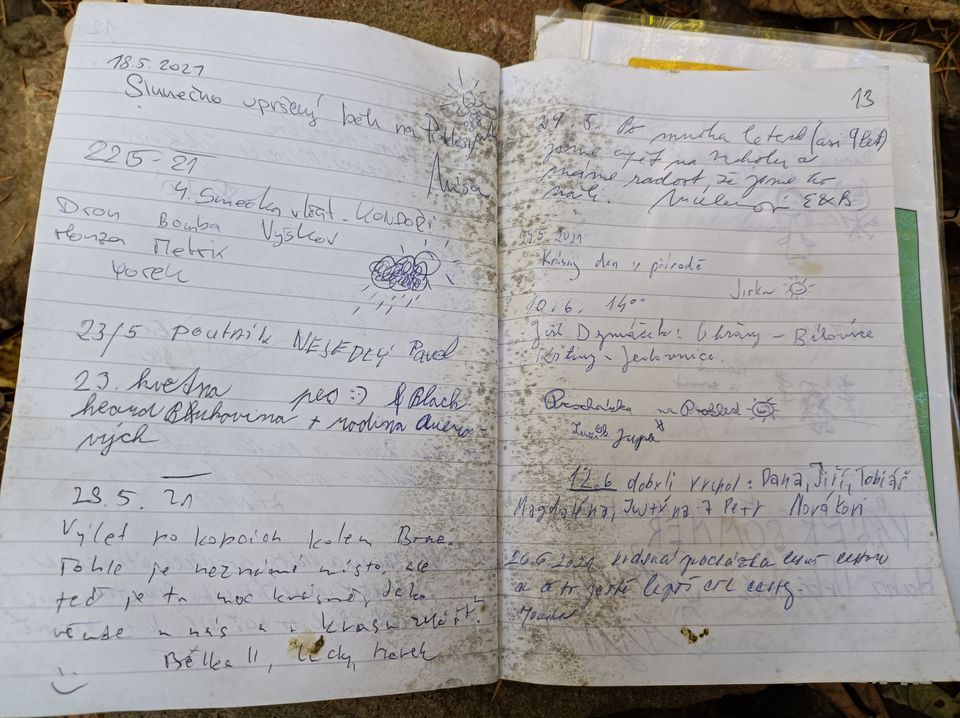 18.5.2021
Slunečno upršený běh na
Míša
22/5-21
4. Smečka vlčat - KONDOŘI
Dron Bomba Vyškov
Honza Metrik
Yorek
23/5 POUTNÍK NESEDLÝ Pavel
23. května pes :) Black
rodina
vých
29.5. 21
Výlet po kopcích kolem Brna.
Tohle je neznámé místo, ale
teď je tu moc krásně. Jako
všude u nás a
Bělka II, Lucky, Marek
13
29. 5. Po mnoha letech (asi 9 let)
jsme opět na vrcholu a
máme radost, že jsme to
E&B
29.5 2021
Krásný den v přírodě
Jirka
10.6. 14⁰⁰
Jiří Dymáček: Obřany - Bílovice
Křtiny - Jedovnice.
Procházka na Prohled
12.6. dobyli vrchol: Dana, Jiří, Tobiáš
Magdaléna, Justýna a Petr Novákovi
26.6.2021 krásná procházka
ještě lepší cíl cesty.